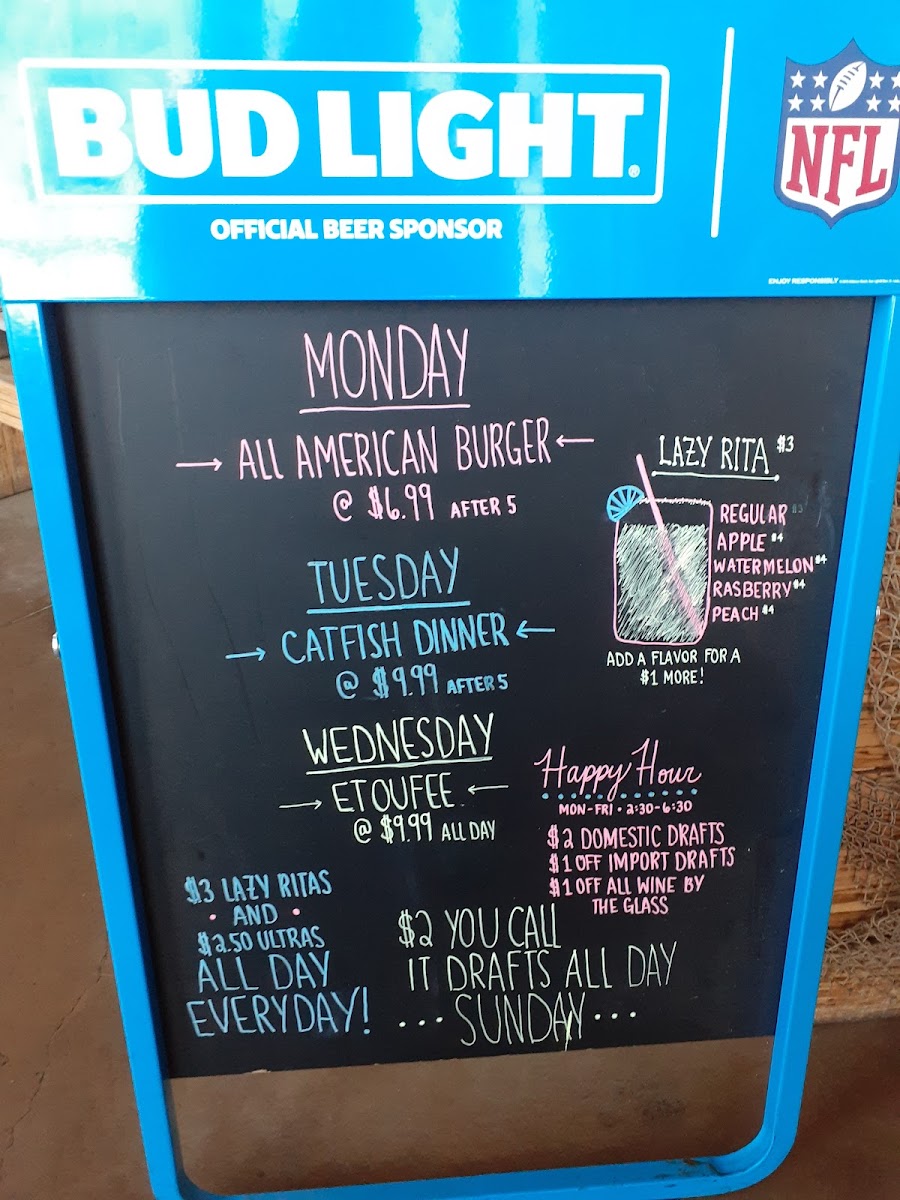 BUD LIGHT®
OFFICIAL BEER SPONSOR
NFL
ENJOY RESPONSIBLY
MONDAY
→ ALL AMERICAN BURGER ←
@ $6.99 AFTER 5
TUESDAY
→ CATFISH DINNER ←
@ $9.99 AFTER 5
WEDNESDAY
→ ETOUFEE ←
@ $9.99 ALL DAY
LAZY RITA $3
REGULAR $3
APPLE $4
WATERMELON $4
RASBERRY $4
PEACH $4
ADD A FLAVOR FOR A
$1 MORE!
Happy Hour
MON-FRI • 2:30-6:30
$2 DOMESTIC DRAFTS
$1 OFF IMPORT DRAFTS
$1 OFF ALL WINE BY
THE GLASS
$3 LAZY RITAS
• AND •
$2.50 ULTRAS
ALL DAY
EVERYDAY!
$2 YOU CALL
IT DRAFTS ALL DAY
... SUNDAY ...